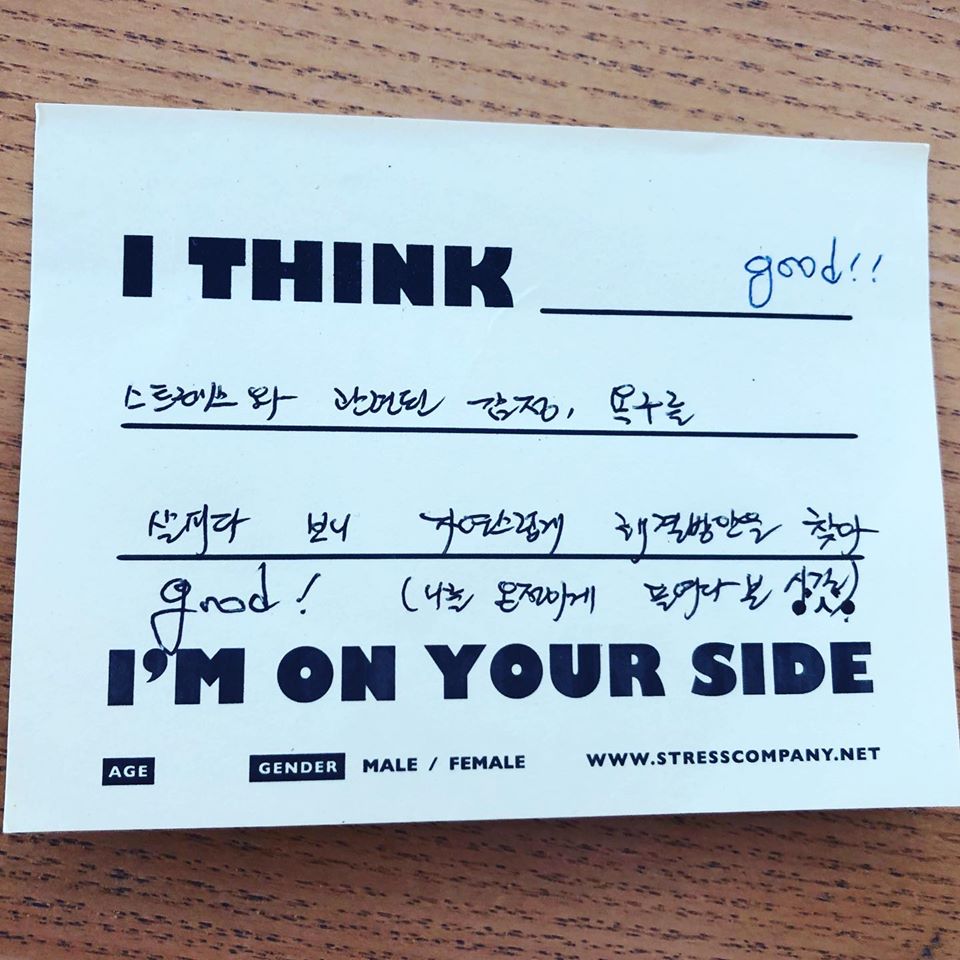 I THINK good!!
스트레스와 관련된 감정, 욕구를
살피다 보니 자연스럽게 해결방안을 찾아
good! (나를 온전하게 들여다 본 시간)
I'M ON YOUR SIDE
AGE GENDER MALE / FEMALE WWW.STRESSCOMPANY.NET